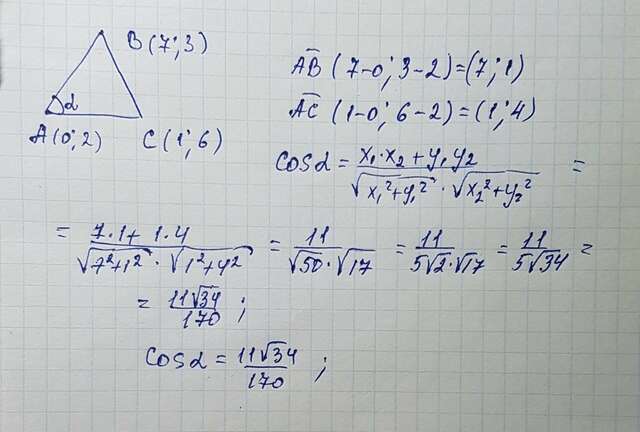 B(7;3)
α
A(0;2) C(1;6)
AB̅ (7-0; 3-2)=(7;1)
AC̅ (1-0; 6-2)=(1;4)
cosα = x₁·x₂+y₁y₂ / √x₁²+y₁² · √x₂²+y₂² =
= 7·1+1·4 / √7²+1² · √1²+4² = 11 / √50·√17 = 11 / 5√2·√17 = 11 / 5√34 =
= 11√34 / 170 ;
cosα = 11√34 / 170 ;